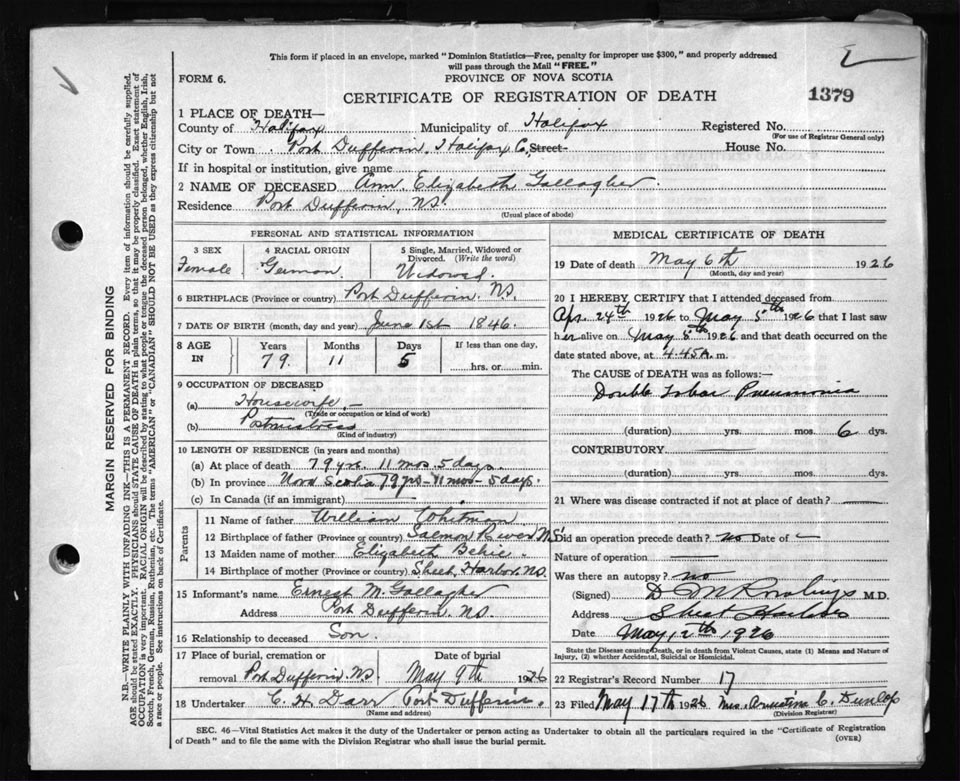 This form if placed in an envelope, marked "Dominion Statistics—Free, penalty for improper use $300," and properly addressed
will pass through the Mail "FREE."
FORM 6.
PROVINCE OF NOVA SCOTIA
CERTIFICATE OF REGISTRATION OF DEATH
1379
1 PLACE OF DEATH—
County of Halifax Municipality of Halifax Registered No.
(For use of Registrar General only)
City or Town Port Dufferin, Halifax Co, Street House No.
If in hospital or institution, give name
2 NAME OF DECEASED Ann Elizabeth Gallagher
Residence Port Dufferin, NS.
(Usual place of abode)
PERSONAL AND STATISTICAL INFORMATION
3 SEX Female
4 RACIAL ORIGIN German
5 Single, Married, Widowed or
Divorced. (Write the word)
Widowed.
6 BIRTHPLACE (Province or country) Port Dufferin. NS.
7 DATE OF BIRTH (month, day and year) June 1st 1846.
8 AGE IN
Years Months Days If less than one day,
79 11 5 hrs. or min.
9 OCCUPATION OF DECEASED
(a) Housewife
(Trade or occupation or kind of work)
(b) Postmistress
(Kind of industry)
10 LENGTH OF RESIDENCE (in years and months)
(a) At place of death 79 yrs. 11 mos. 5 days
(b) In province Nova Scotia 79 yrs - 11 mos - 5 days.
(c) In Canada (if an immigrant)
Parents
11 Name of father William Whitman
12 Birthplace of father (Province or country) Salmon River NS
13 Maiden name of mother Elizabeth
14 Birthplace of mother (Province or country) Sheet Harbor. NS.
15 Informant's name Ernest M. Gallagher
Address Port Dufferin. NS.
16 Relationship to deceased Son.
17 Place of burial, cremation or Date of burial
removal Port Dufferin. NS May 9th 1926
18 Undertaker C. H. Port Dufferin.
(Name and address)
MEDICAL CERTIFICATE OF DEATH
19 Date of death May 6th 1926
(Month, day and year)
20 I HEREBY CERTIFY that I attended deceased from
Apr. 24th 1926 to May 5th 1926 that I last saw
her alive on May 5th 1926 and that death occurred on the
date stated above, at 4.45 A. m.
The CAUSE of DEATH was as follows:—
Double Lobar Pneumonia
(duration) yrs. mos. 6 dys.
CONTRIBUTORY
(duration) yrs. mos. dys.
21 Where was disease contracted if not at place of death?
Did an operation precede death? no Date of
Nature of operation
Was there an autopsy? no
(Signed) D M Rowlings M.D.
Address Sheet Harbor
Date May 12th 1926
State the Disease causing Death, or in death from Violent Causes, state (1) Means and Nature of
Injury, (2) whether Accidental, Suicidal or Homicidal.
22 Registrar's Record Number 17
23 Filed May 17th 1926 Mrs. C. Dunlop
(Division Registrar)
SEC. 46—Vital Statistics Act makes it the duty of the Undertaker or person acting as Undertaker to obtain all the particulars required in the "Certificate of Registration
of Death" and to file the same with the Division Registrar who shall issue the burial permit.
(OVER)
MARGIN RESERVED FOR BINDING
N.B.—WRITE PLAINLY WITH UNFADING INK—THIS IS A PERMANENT RECORD. Every item of information should be carefully supplied.
AGE should be stated EXACTLY. PHYSICIANS should STATE CAUSE OF DEATH in plain terms, so that it may be properly classified. Exact statement of
OCCUPATION is very important. RACIAL ORIGIN will be described by stating to what people or tongue the deceased person belonged, whether English, Irish,
Scotch, French, German, Russian, Ruthenian, etc. The terms "AMERICAN" or "CANADIAN" SHOULD NOT BE USED as they express citizenship but not
a race or people. See instructions on back of Certificate.